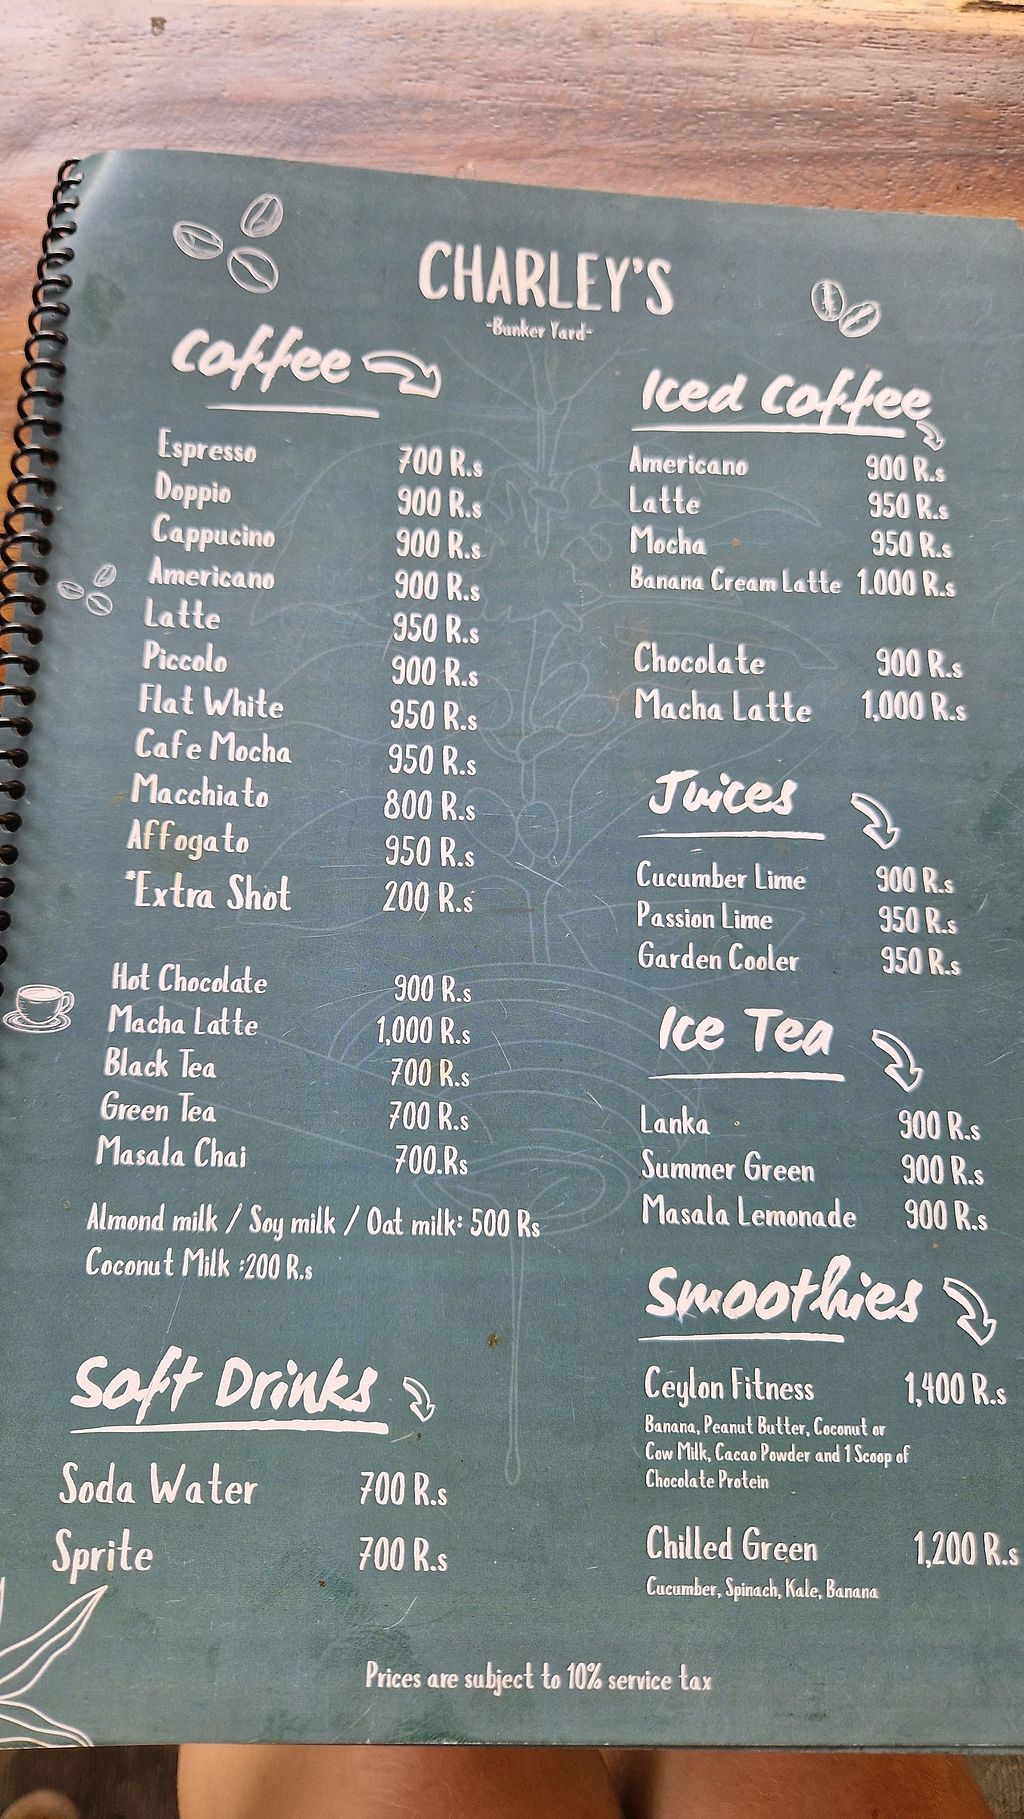 CHARLEY'S
-Bunker Yard-
Coffee
Espresso 700 R.s
Doppio 900 R.s
Cappucino 900 R.s
Americano 900 R.s
Latte 950 R.s
Piccolo 900 R.s
Flat White 950 R.s
Cafe Mocha 950 R.s
Macchiato 800 R.s
Affogato 950 R.s
*Extra Shot 200 R.s
Hot Chocolate 900 R.s
Macha Latte 1,000 R.s
Black Tea 700 R.s
Green Tea 700 R.s
Masala Chai 700.Rs
Almond milk / Soy milk / Oat milk: 500 Rs
Coconut Milk :200 R.s
Soft Drinks
Soda Water 700 R.s
Sprite 700 R.s
Iced Coffee
Americano 900 R.s
Latte 950 R.s
Mocha 950 R.s
Banana Cream Latte 1.000 R.s
Chocolate 900 R.s
Macha Latte 1,000 R.s
Juices
Cucumber Lime 900 R.s
Passion Lime 950 R.s
Garden Cooler 950 R.s
Ice Tea
Lanka 900 R.s
Summer Green 900 R.s
Masala Lemonade 900 R.s
Smoothies
Ceylon Fitness 1,400 R.s
Banana, Peanut Butter, Coconut or
Cow Milk, Cacao Powder and 1 Scoop of
Chocolate Protein
Chilled Green 1,200 R.s
Cucumber, Spinach, Kale, Banana
Prices are subject to 10% service tax